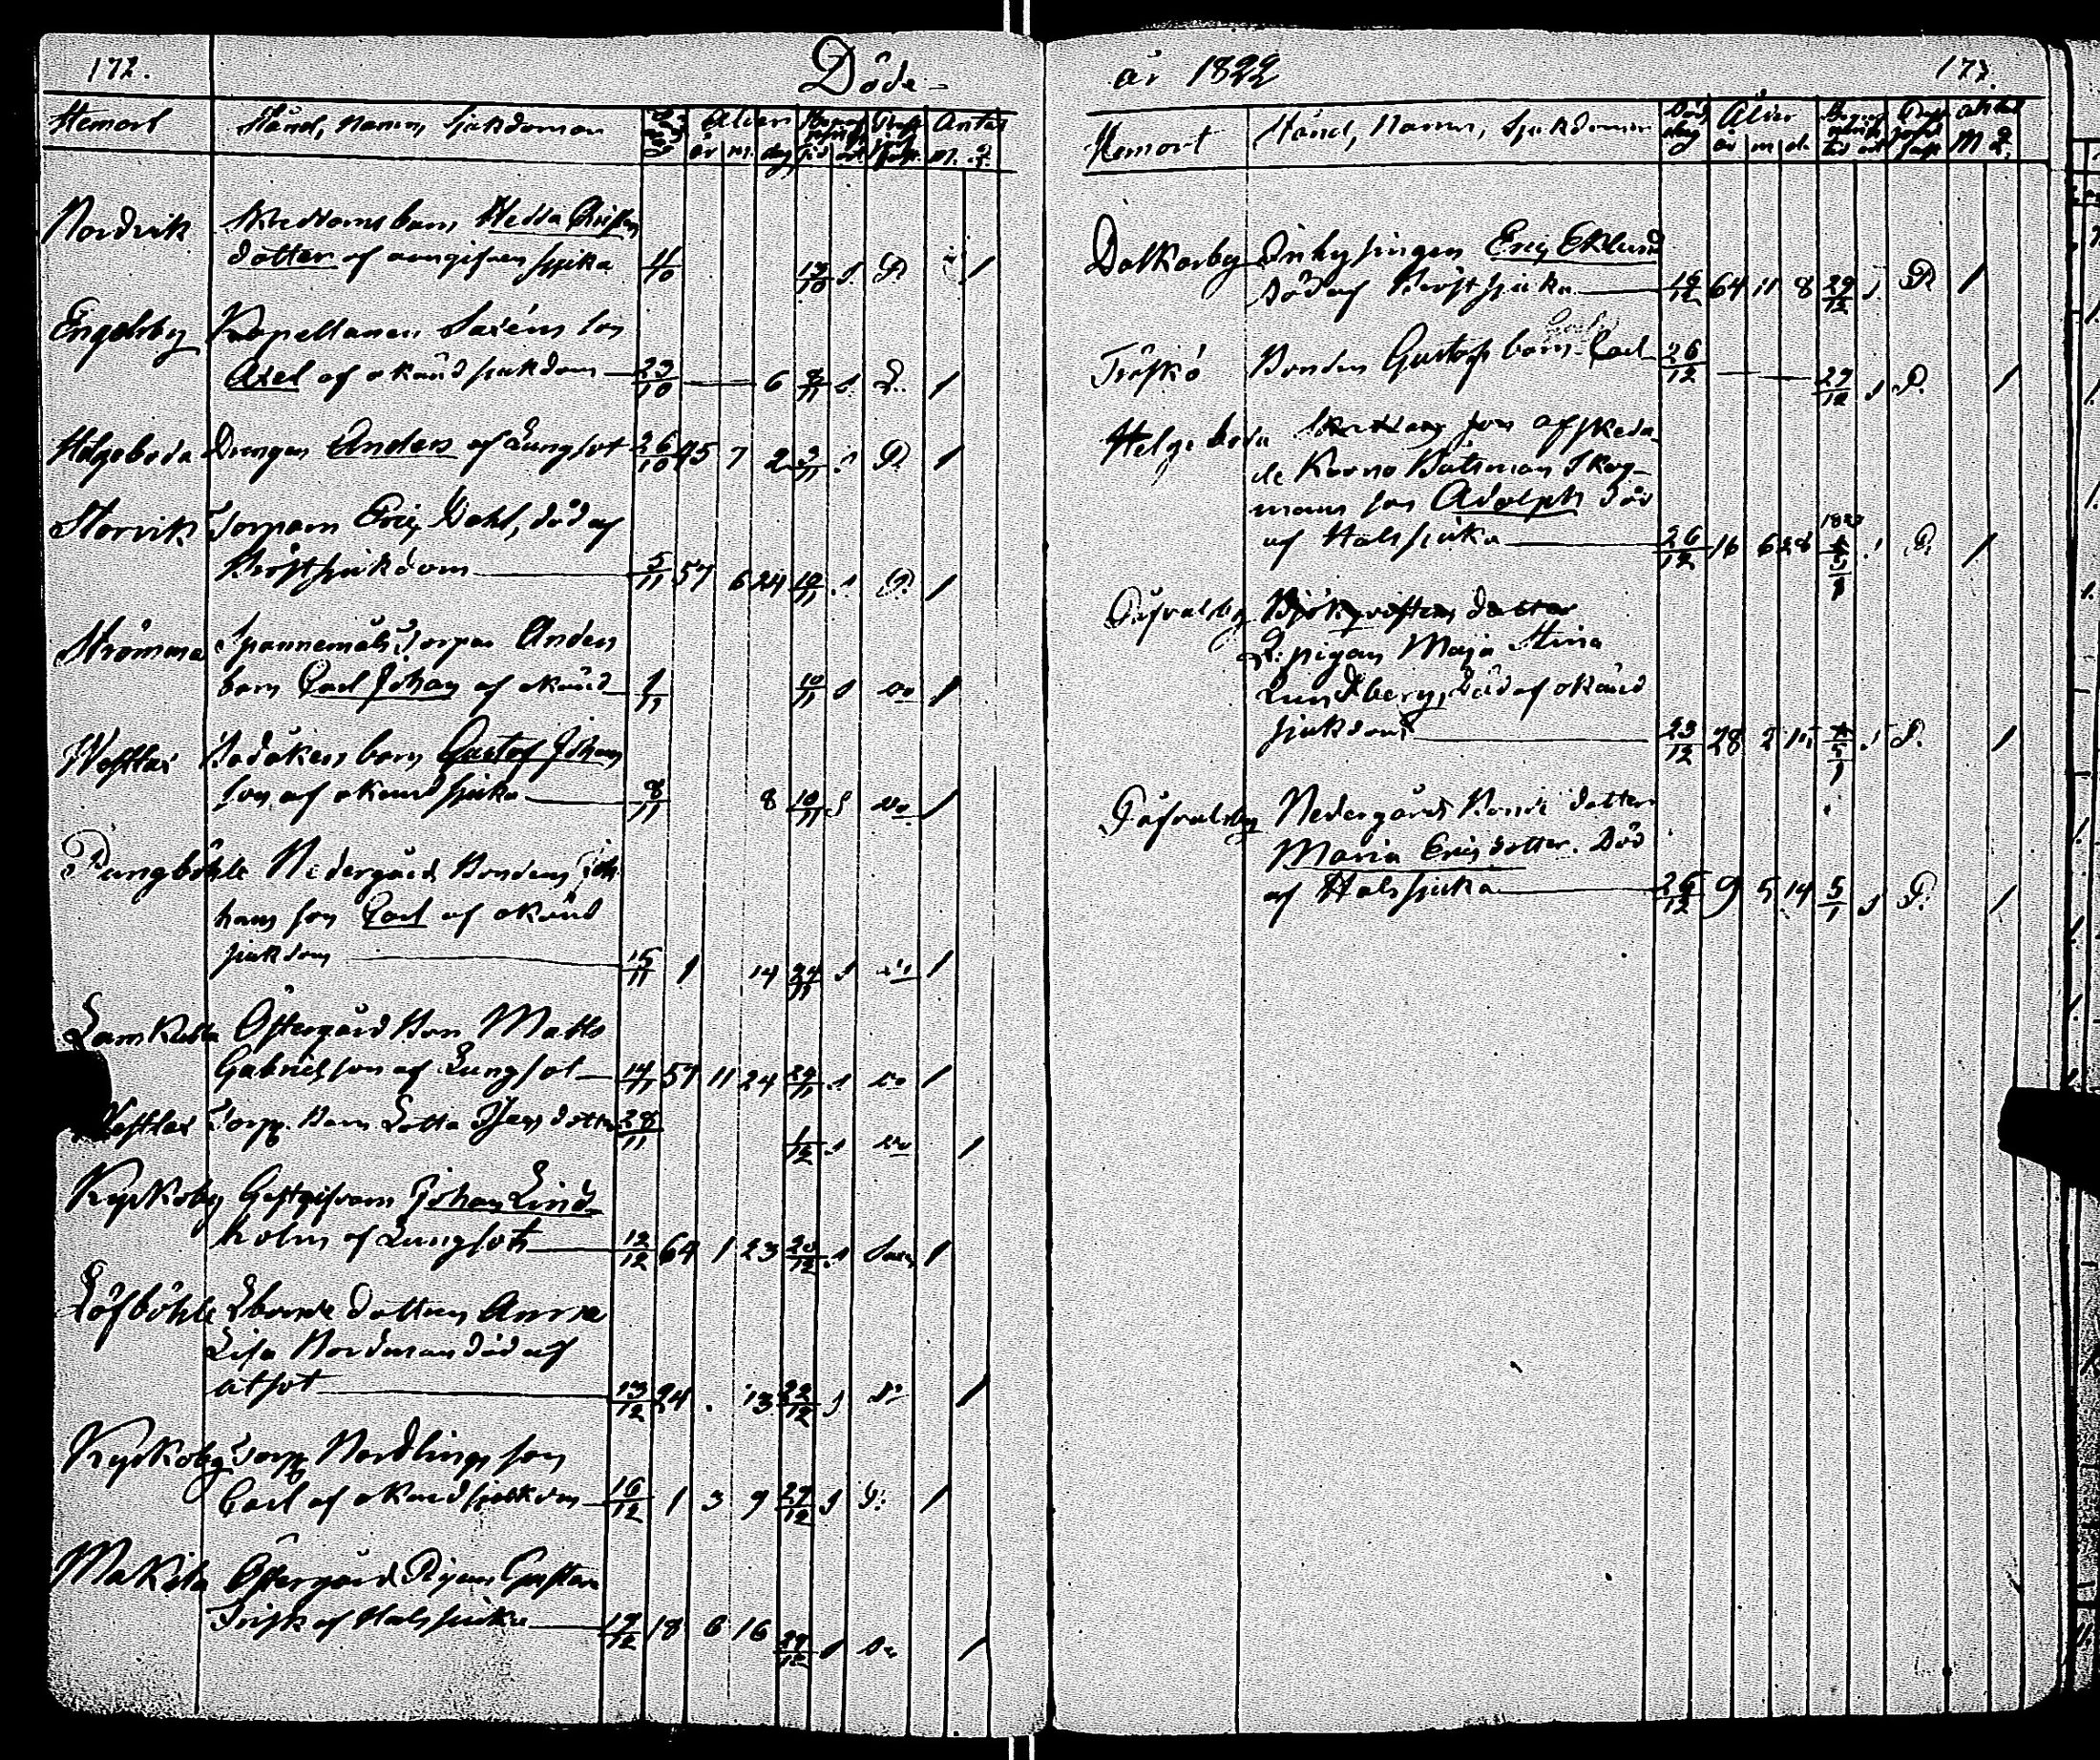 172. Döde
Hemort Stånd, Namn, Sjukdomar Ålder Antal
år m. dag tid ort M. Q.
Nordvik barn Hedda Christen
dotter af sjuka 11/10 17/10 s. P. 1
Engelsby Kapellanen Saxéns son
Axel af okänd sjukdom 29/10 6 s. P. 1
Helgeboda Drengen Anders af Lungsot 26/10 45 7 2 3/11 s. P. 1
Storvik Torparn Eric Dahl, död af
Bröstsjukdom 5/11 57 6 24 10/11 s. P. 1
Strömma Spannemåls Torpar Anders
barn Carl Johan af okänd 1/11 10/11 s do 1
Westlax Badåkers barn Gustaf Johans
son af okänd sjuka 8/11 8 10/11 s do 1
Pungböhle Nedergård Bondens Jo
hans son Carl af okänd
sjukdom 15/11 1 14 24/11 s 1
Lamkulla Östergård Bon Matts
Gabrielsson af Lungsot 14/11 57 11 24 24/11 s. do 1
Westlax Torp. Barn Lotta dotter 28/11 1/12 s do 1
Kyrkoby Gestgifvarn Johan Lind-
holm af Lungsot 12/12 64 1 23 20/12 s. 1
Löfböhle dottern Anna
Lisa Nordman död af
åtsot 13/12 24 . 13 22/12 s 1
Kyrkoby Torp Nordlings son
Carl af okänd sjukdom 16/12 1 3 9 27/12 s P. 1
Makila Östergård Pigan Gustava
Frisk af Halssjuka 17/12 18 6 16 29/12 s 1
år 1822 173
Hemort Stånd, Namn, Sjukdomar Död dag Ålder Antal
år m d. tid ort M Q.
Dalkarby Inhysingen Eric Eklund
Död af Bröstsjuka 16/12 64 11 8 29/12 s. P. 1
Träskö Bonden Gustafs barn Carl 26/12
29/12 s P. 1
Helgeboda son afskeda
de Krono Båtsman Skog-
mans son Adolph död
af Halssjuka 26/12 16 6 28 s. P. 1
Gäfvalsby dotter
pigan Maja Stina
Lundberg, Död af okänd
sjukdom 23/12 28 2 s P. 1
Gäfvalsby Nedergårds Bonde dotter
Maria Ericsdotter. Död
af Halssjuka 26/12 9 5 14 5/1 s P. 1